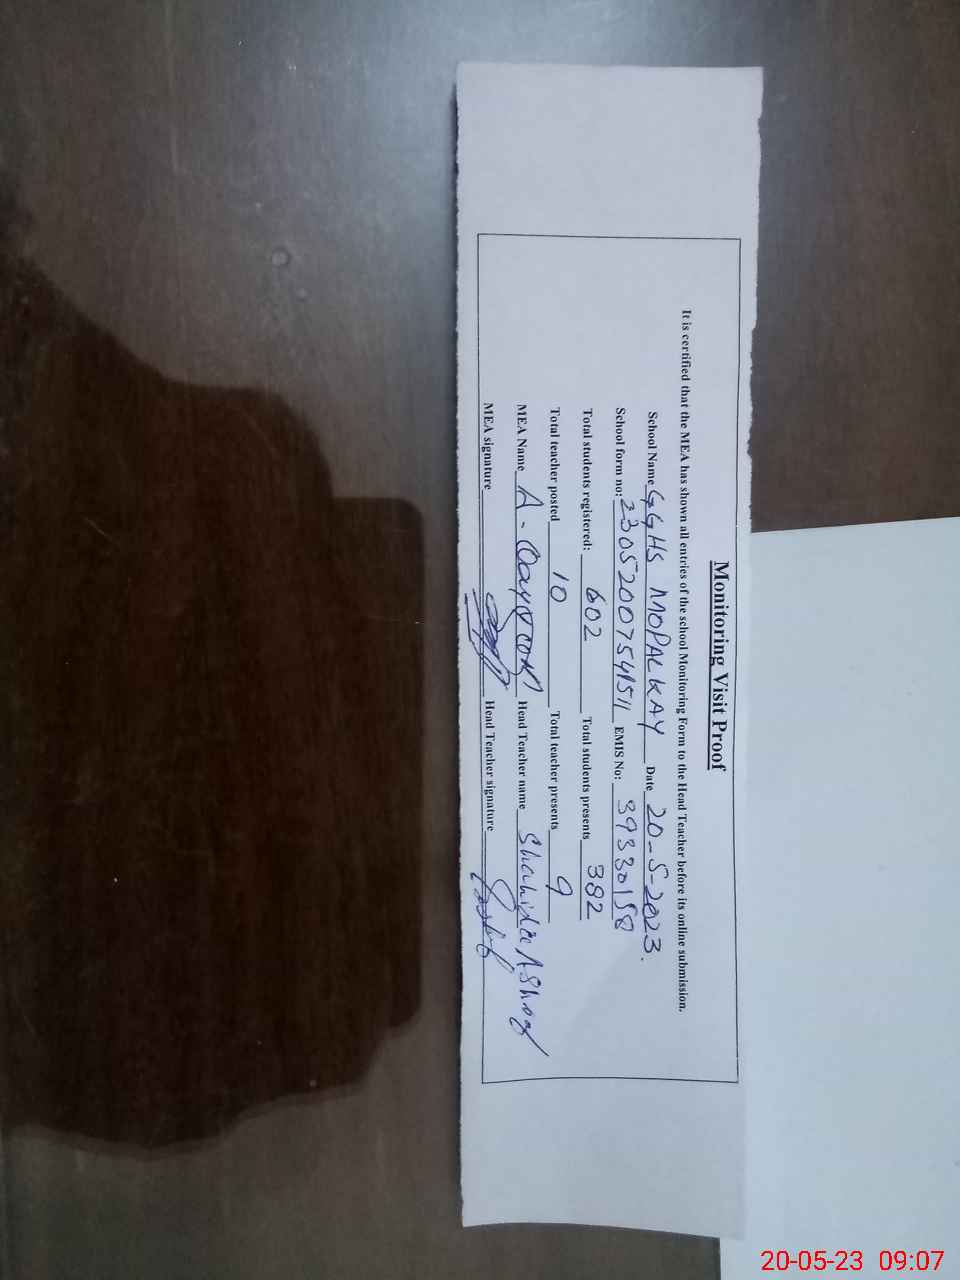 Monitoring Visit Proof
It is certified that the MEA has shown all entries of the school Monitoring Form to the Head Teacher before its online submission.
School Name GGHS MOPALKAY Date 20-5-2023.
School form no: EMIS No: 39330158
Total students registered: 602 Total students presents 382
Total teacher posted 10 Total teacher presents 9
MEA Name A. Head Teacher name Shahida Ashraf
MEA signature Head Teacher signature
20-05-23 09:07